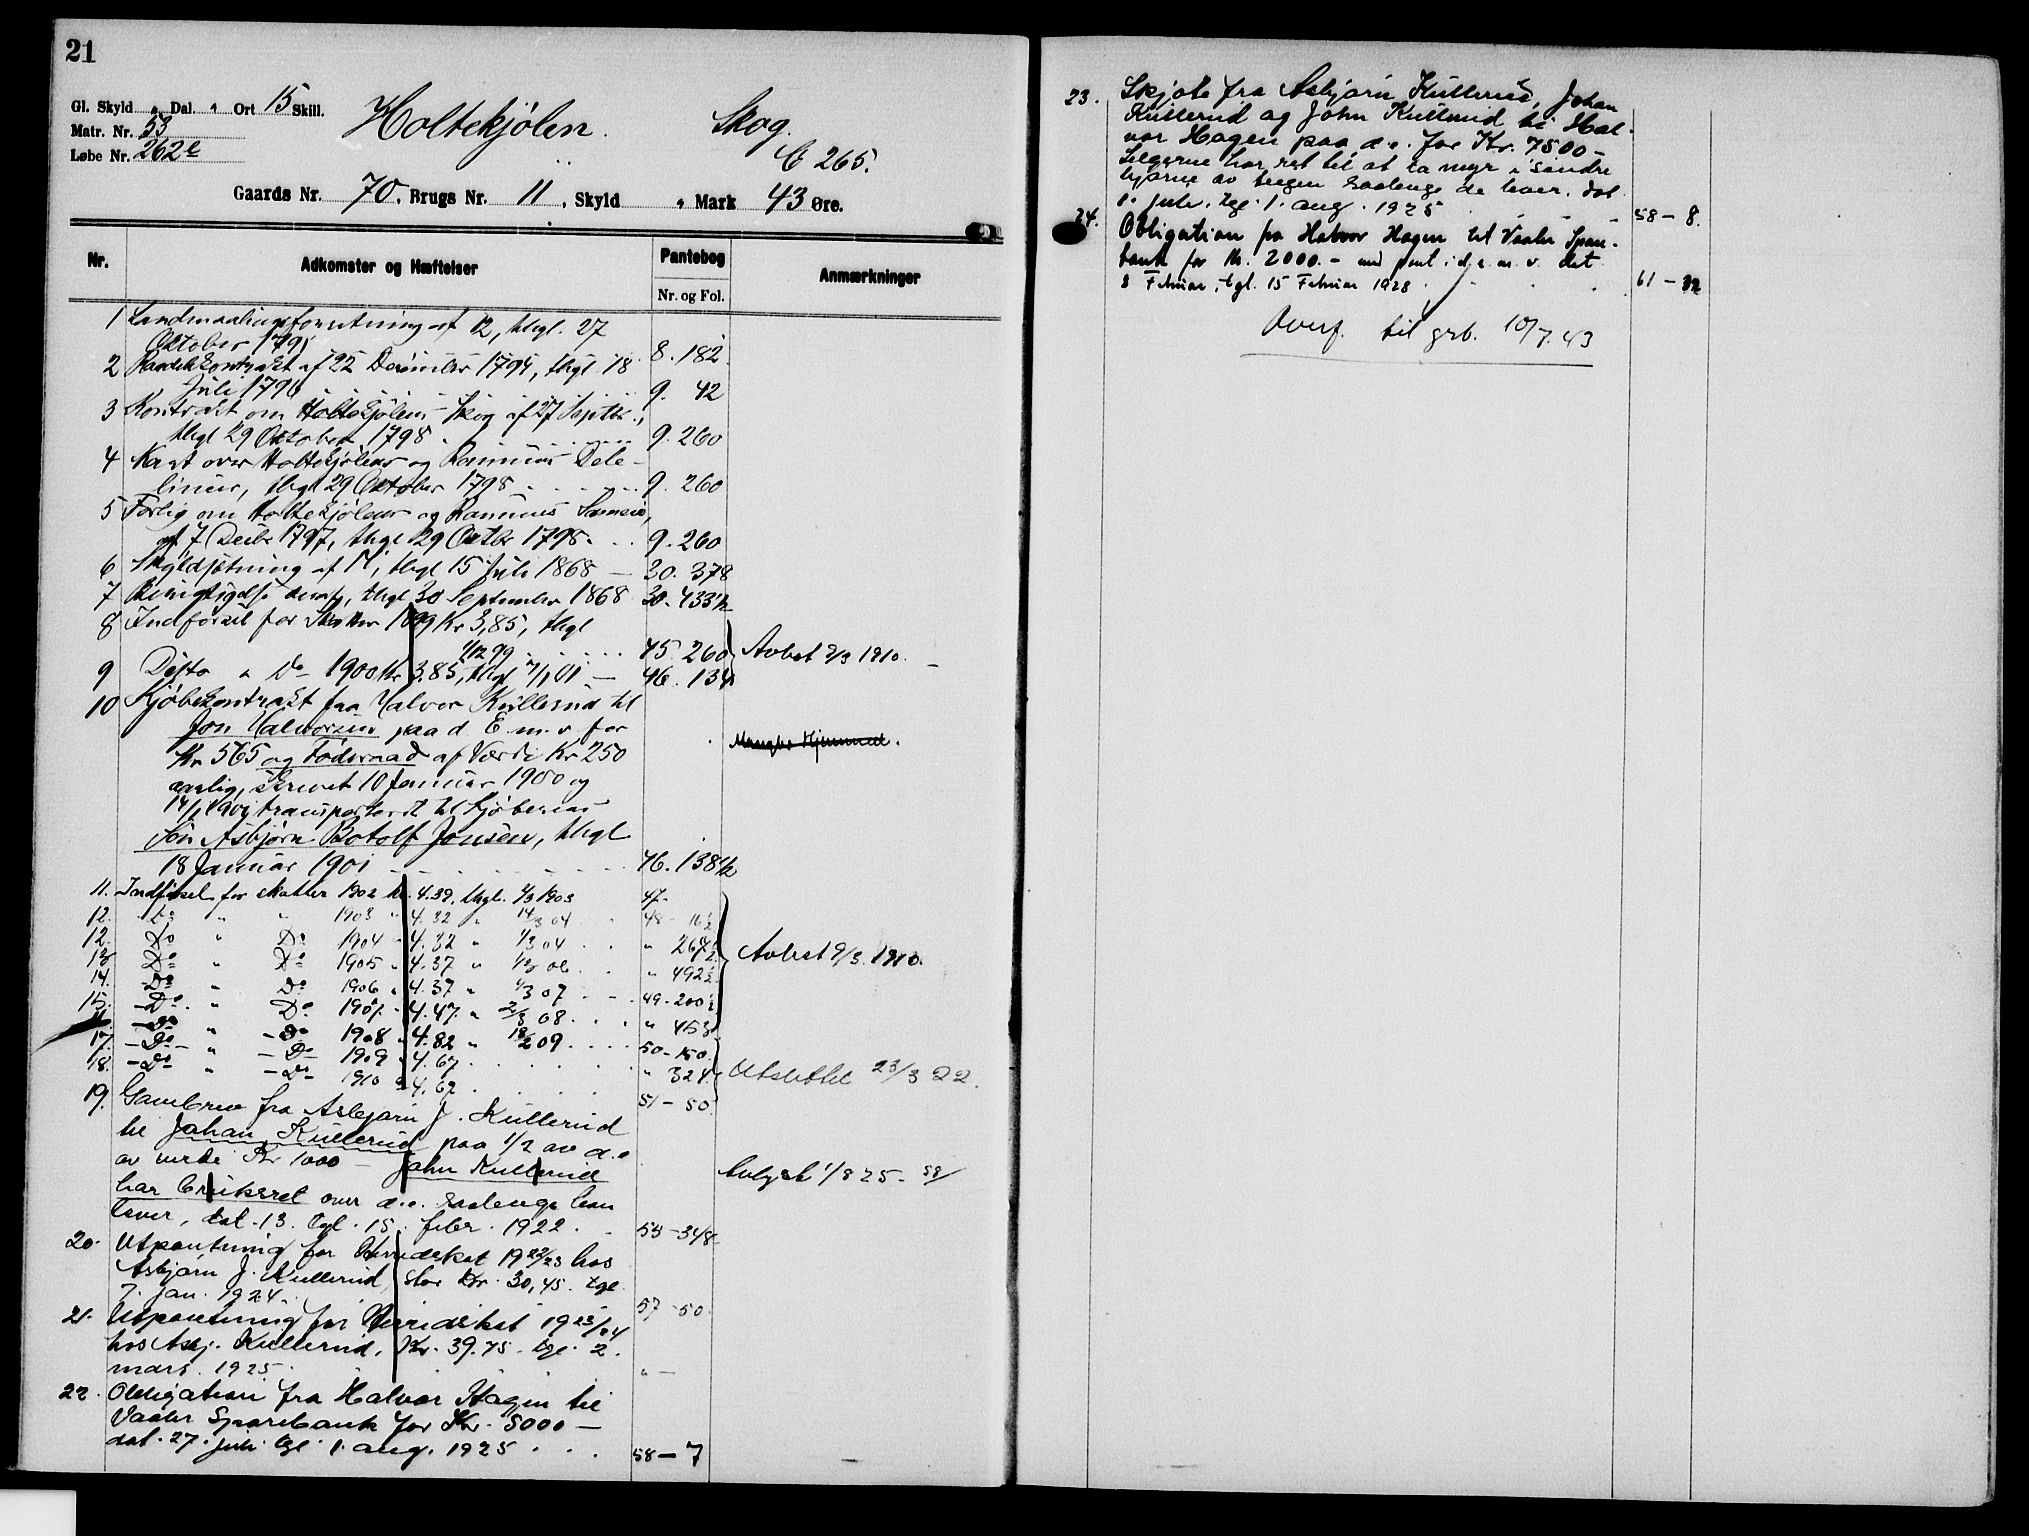 21
Gl. Skyld " Dal. " Ort 15 Skill.
Matr. Nr. 53
Løbe Nr. 262e
Holtekjølen. Skog.
C 265.
Gaards Nr. 70. Brugs Nr. 11, Skyld " Mark 43 Øre.
Nr. Adkomster og Hæftelser Pantebog Anmærkninger
Nr. og Fol.
1 af 12, thgl. 27
Oktober 8. 182
2 af 22 December 1794, thgl 18
Juli 1796 9. 42
3 Kontrakt om Holtekjølens Skog af 27 Septbr.,
thgl 29 Oktober 1798 9. 260
4 Kart over Holtekjølens og Dele-
linier, thgl 29 Oktober 1798 9. 260
5 Forlig om Holtekjølens og
af 7 Decbr 1797, thgl 29 Oktbr 1798. 9. 260
6 Skyldsætning af 14, thgl 15 Juli 1868 — 30. 378
7 Berigtigelse deraf, thgl 30 September 1868 30. 433½
8 Indførsel for Skatter 1899 Kr 3,85, thgl
1/12 99 45. 260 } Avlest 9/3 1910.
9 Ditto " Do 1900 Kr 3,85, thgl 7/1 01 — 46. 134
10 Kjøbekontrakt fra Halvor Kullerud til
Jon Halvorsen paa d. E. m. v. for
Kr 565 og Føderaad af Værdi Kr 250
aarlig, skrevet 10 Januar 1900 og
transporteret til Kjøberens
Søn Asbjørn Botolf Jonsen, thgl
18 Januar 1901 46. 138½
Mangler Hjemmel.
11. Indførsel for skatter 1902 kr. 4.39, thgl. 4/3 1903 47.
12. Do " " 1903 " 4.32 " 14/3 04 48 - 16½
12. Do " Do 1904 " 4.32 " 1/3 04 " 267½ } Avlest 9/3. 1910.
13 Do " Do 1905 " 4.37 " 06 " 492½
14. Do " Do 1906 " 4.37 " 1/3 07 49 - 200½
15. Do " Do 1907. " 4.47. " 2/3 08. " 453
Do " Do 1908 " 4.82 " 18/2 09 50 - 150.
17. Do " Do 1909 " 4.67 " 324.
18. Do " Do 1910 " 4.67 51 - 50. Utslettet 23/3 22.
19. Gavebrev fra Asbjørn J. Kullerud
til Johan Kullerud paa 1/2 av d.e.
av verdi Kr 1000 — John Kullerud
har bruksret over d.e. saalenge han
lever, dat. 13. tgl. 15. febr. 1922. 53 - 348
Avlyst 1/8 25 - 58/
20. Utpantning for Herredskat 1922/23 hos
Asbjørn J. Kullerud, stor Kr. 30,45. tgl
7. jan. 1924. 57 - 50.
21. Utpantning for Herredskat 1923/24
hos Asbj. Kullerud, Kr. 39.75 - tgl. 2.
mars. 1925. " —
22. Obligation fra Halvor Hagen til
Vaaler Sparebank for Kr. 5000 —
dat. 27. juli. tgl. 1. aug. 1925 58 — 7
23. Skjøte fra Asbjørn Kullerud, Johan
Kullerud og John Kullerud til Hal-
vor Hagen paa d.e. for Kr. 7500 -
Selgerne har ret til at ta myr i søndre
hjørne av teigen saalenge de lever. dat
1. juli. tgl. 1. aug. 1925 58 - 8.
24. Obligation fra Halvor Hagen til Vaaler Spare-
bank for Kr. 2000. - med pant i d. e. m. v. dat.
8 Februar, tgl. 15 Februar 1928 61 - 32
Overf. til grb. 10/7. 43